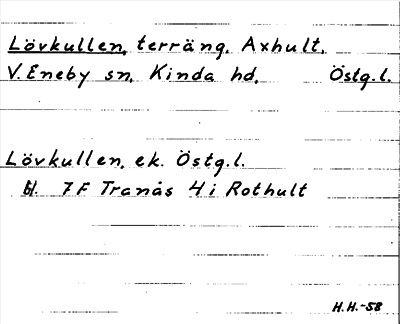 Lövkullen, terräng. Axhult,
V. Eneby sn, Kinda hd, Östg.l.
Lövkullen, ek. Östg.l.
bl. 7F Tranås 4i Rothult
H.H.-58